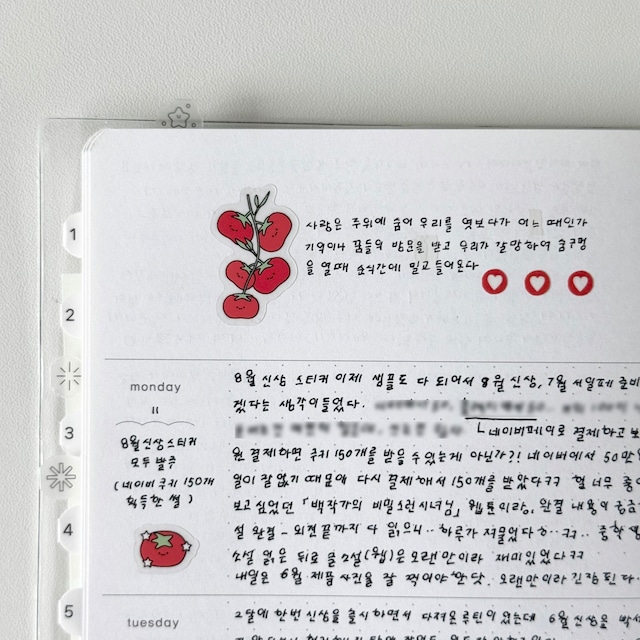 사랑은 주위에 숨어 우리를 엿보다가 어느 때인가
기억이나 꿈들의 방문을 받고 우리가 갈망하여 숨구멍
을 열때 순식간에 밀고 들어온다
1
2
3
4
5
monday
11
8월 신상 스티커
모두 발주
(네이버 쿠키 150개
획득한 썰)
8월 신상 스티커 이제 샘플도 다 되어서 8월 신상, 7월 세일페 준비
겠다는 생각이 들었다.
네이버페이로 결제하고 보
원 결제하면 쿠키 150개를 받을 수 있는게 아닌가?! 네이버에서 50만
일이 잘 없기 때문에 다시 결제해서 150개를 받았다ㅋㅋ 헐 너무 좋아
보고싶었던 「백작가의 비밀스런 시녀님」 웹툰이랑, 완결 내용이 궁금
설 완결 - 외전 끝까지 다 읽으니.. 하루가 저물었다ㅎ..ㅋㅋ.. 중학생
소설 읽은 뒤로 글소설(웹)은 오랜만이라 재미있었다ㅋㅋ
내일은 6월 제품 사진을 잘 찍어야 한당. 오랜만이라 긴장 된다
tuesday
2달에 한번 신상을 출시하면서 다져온 루틴이 있는데 6월 신상은